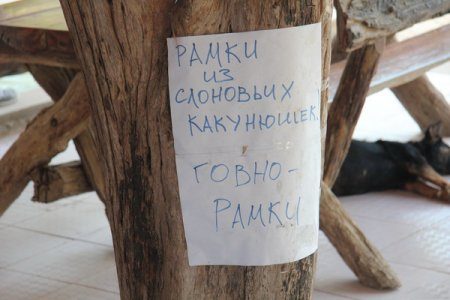 РАМКИ
ИЗ
СЛОНОВЬИХ
КАКУНЮШЕК!
ГОВНО-
РАМКИ